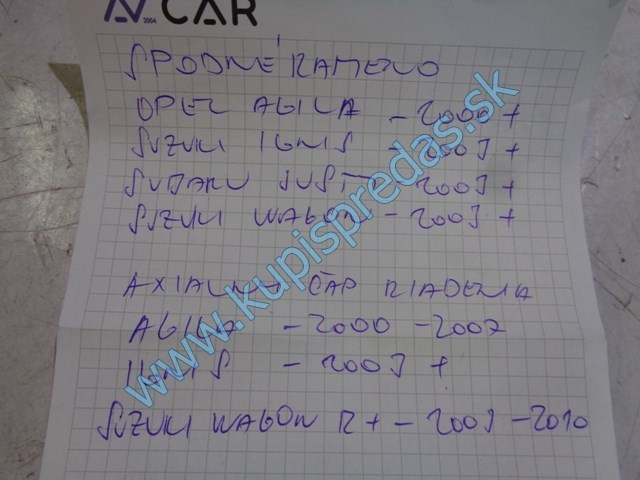 AV CAR
2004
SPODNÉ RAMENO
OPEL AGILA - 2000 +
SUZUKI IGNIS - 2003 +
SUBARU JUSTY - 2003 +
SUZUKI WAGON - 2003 +
AXIALNY ČAP RIADENIA
AGILA - 2000 - 2007
IGNIS - 2003 +
SUZUKI WAGON R + - 2003 - 2010
www.kupispredas.sk